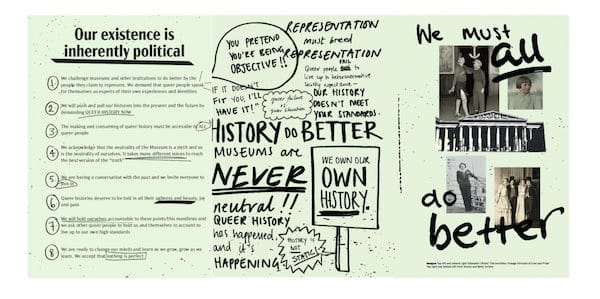 Our existence is
inherently political
1 We challenge museums and other institutions to do better by the
people they claim to represent. We demand that queer people speak
for themselves as experts of their own experiences and identities.
2 We will push and pull our histories into the present and the future by
demanding QUEER HISTORY NOW
3 The making and consuming of queer history must be accessible to ALL
queer people
4 We acknowledge that the neutrality of the Museum is a myth and so
is the neutrality of ourselves. It takes many different voices to reach
the best version of the "truth"
5 We are having a conversation with the past and we invite everyone to
this of
6 Queer histories deserve to be told in all their ugliness and beauty, joy
and pain
7 We will hold ourselves accountable to these points/this manifesto and
we ask other queer people to hold us and themselves to account to
live up to our own high standards
8 We are ready to change our minds and learn as we grow, grow as we
learn. We accept that nothing is perfect
YOU PRETEND
YOU'RE BEING
OBJECTIVE!!
REPRESENTATION
must breed
REPRESENTATION
Queer people FAIL to
live up to heteronormative
society
OUR HISTORY
DOESN'T MEET
YOUR STANDARDS.
IF IT DOESN'T
FIT YOU, I'LL
HAVE IT!"
queer failure
queer liberation
HISTORY DO BETTER
MUSEUMS are
NEVER
neutral!!
QUEER HISTORY
has happened,
and it's
HAPPENING
WE OWN OUR
OWN
HISTORY.
HISTORY IS
NOT
STATIC!
We must
all
do
better